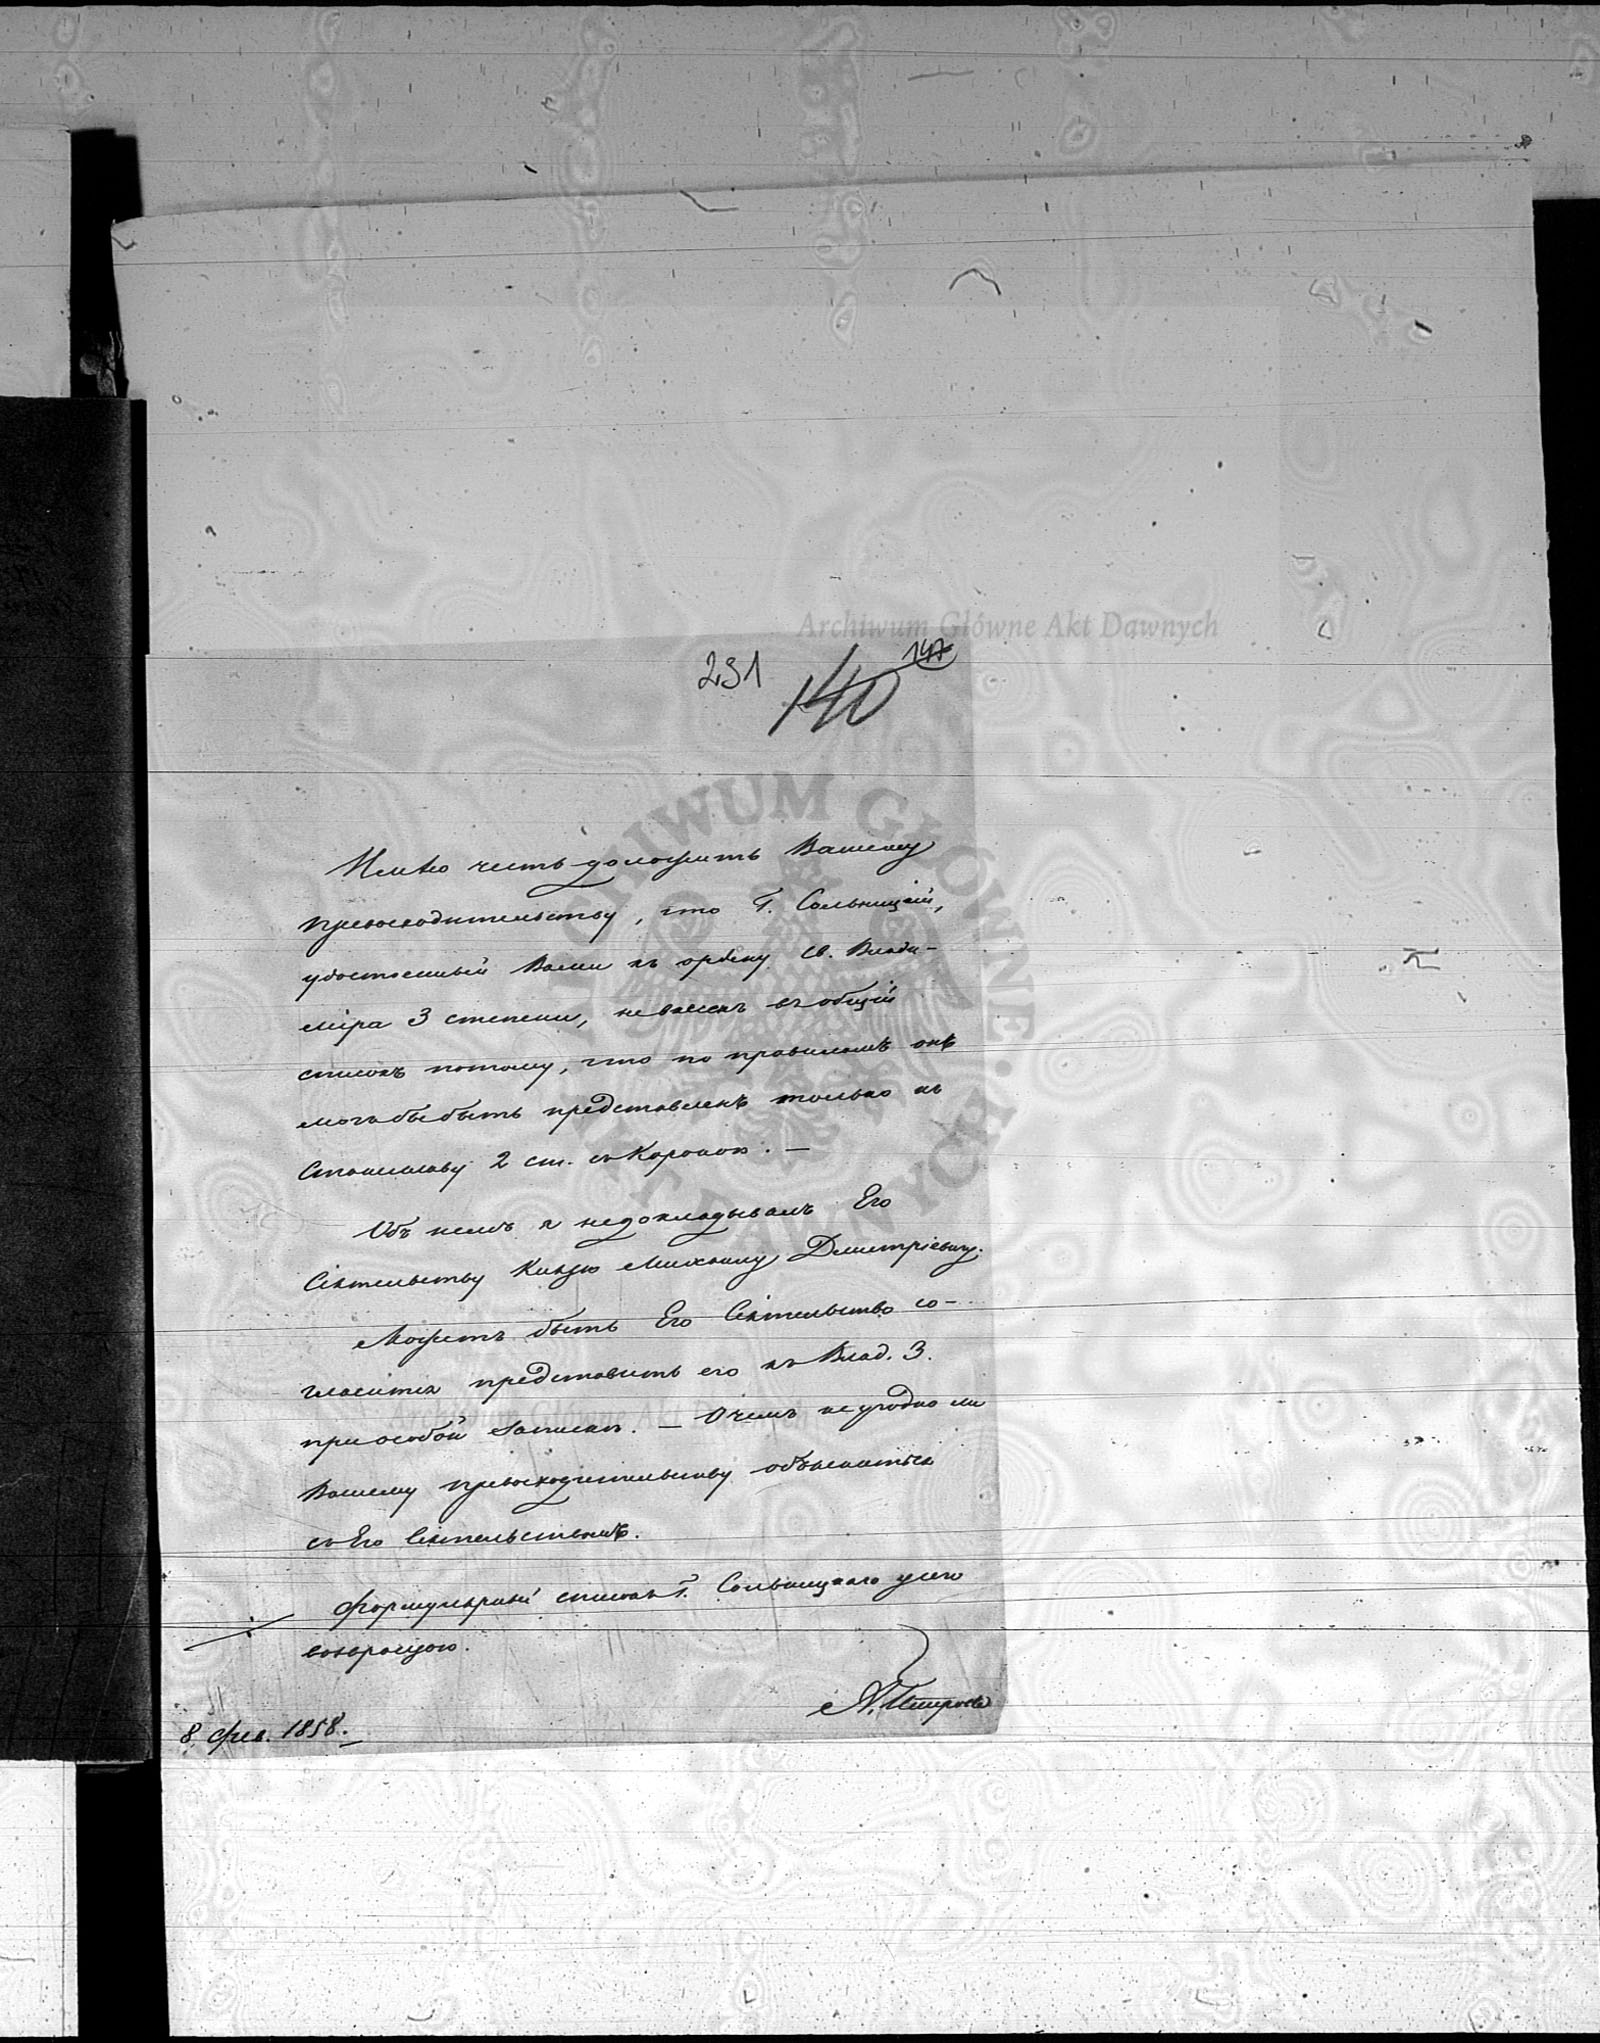 Archiwum Główne Akt Dawnych
231 140 147
ARCHIWUM GŁÓWNE AKT DAWNYCH
Имѣю честь доложить Вашему
превосходительству, что Г. Сольницкій,
удостоенный Вами къ ордену Св. Влади-
міра 3 степени, не внесенъ въ общій
списокъ потому, что по правиламъ онъ
могъ бы быть представленъ только къ
Станиславу 2 ст. съ Короною. —
Объ немъ я недокладывалъ Его
Сіятельству Князю Михаилу Дмитріевичу.
Можетъ быть Его Сіятельство со-
гласится представить его къ Влад. 3.
при особой запискѣ. — О чемъ не угодно ли
Archiwum Główne Akt Dawnych
Вашему превосходительству объясниться
съ Его Сіятельствомъ.
Формулярный списокъ Г. Сольницкаго у сего
возвращаю.
8 фев. 1858.